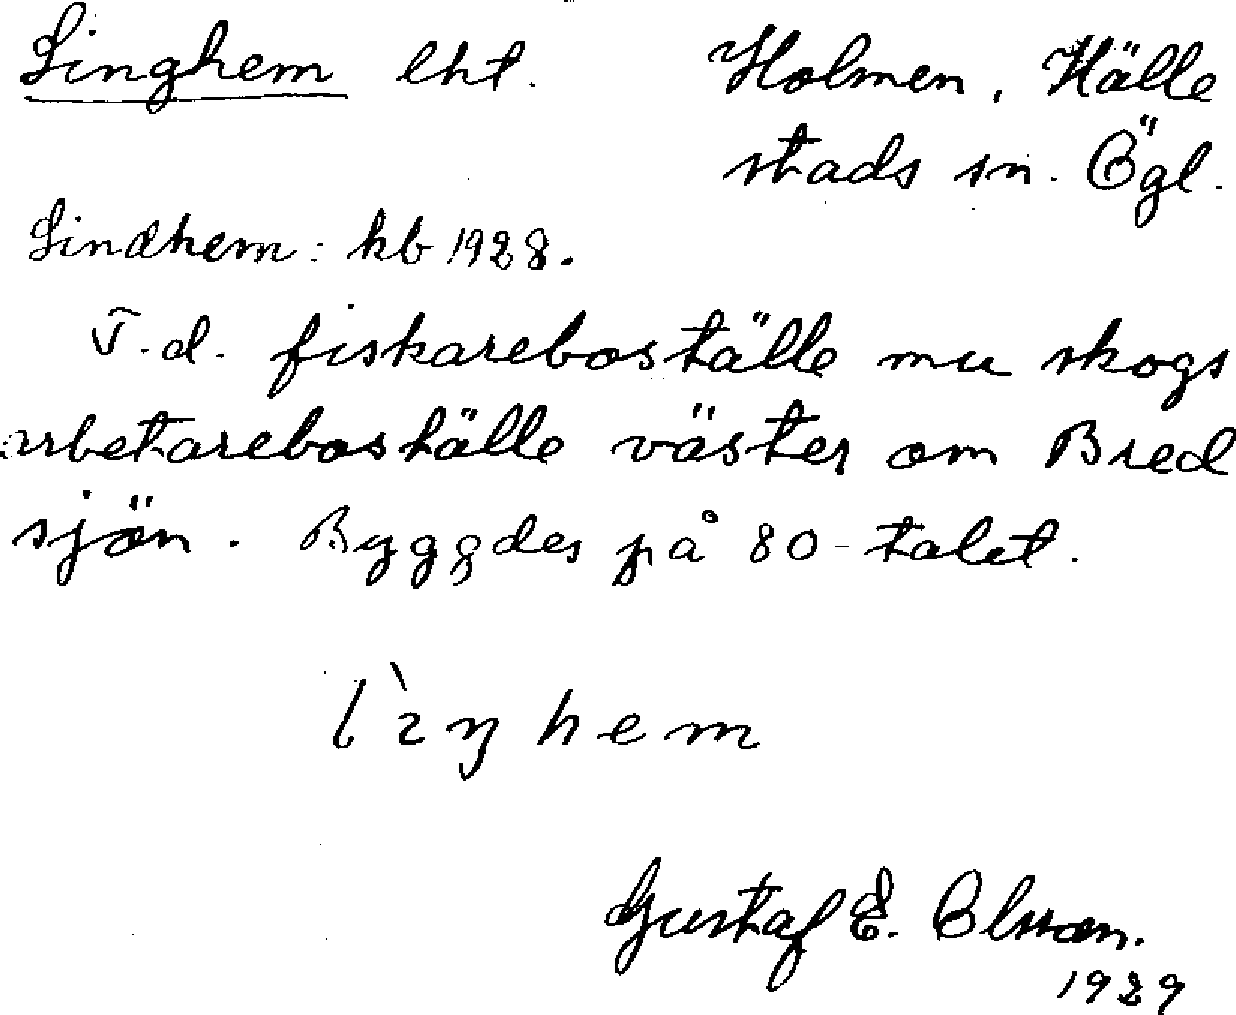 Linghem lht. Holmen, Hälle
stads sn. Ögl.
Lindhem: kb 1928.
F.d. fiskareboställe nu skogs
arbetareboställe väster om Bred
sjön. Byggdes på 80-talet.
lìŋhem
Gustaf E. Olsson.
1929